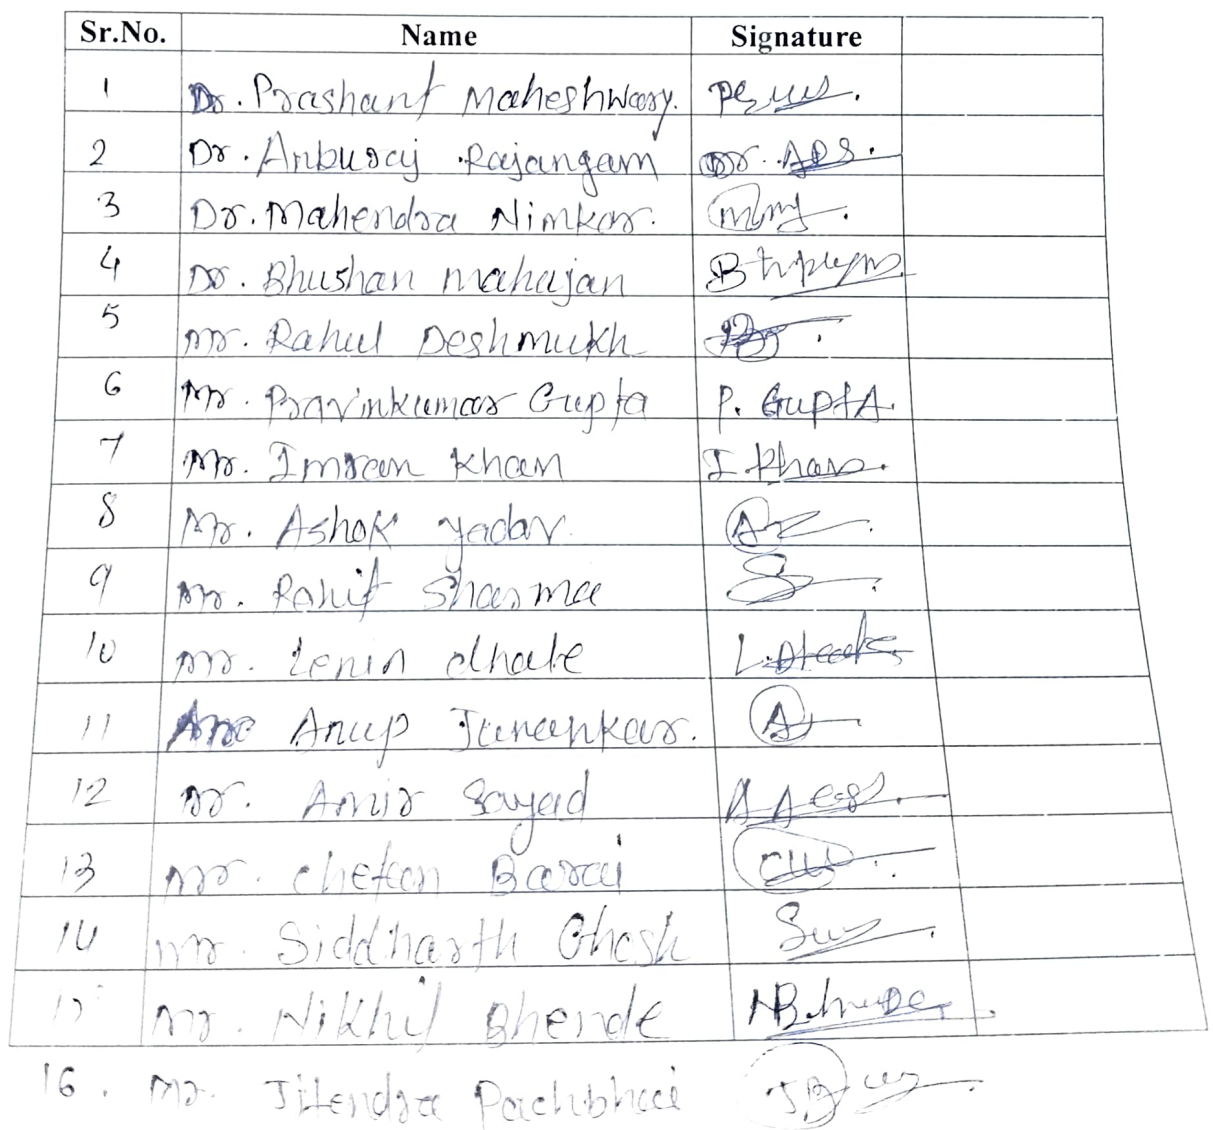 Sr.No. Name Signature
1 Dr. Prashant Maheshwary.
2 Dr. Anburaj Rajangam
3 Dr. Mahendra Nimkar.
4 Dr. Bhushan Mahajan
5 Mr. Rahul Deshmukh
6 Mr. Pravinkumar Gupta P. Gupta.
7 Mr. Imran Khan I Khan.
8 Mr. Ashok Yadav.
9 Mr. Rohit Sharma
10 Mr. Lenin dhale
11 Anup Junankar.
12 Mr. Amir Sayad
13 Mr. Chetan Barai
14 Mr. Siddharth Ghosh
15 Mr. Nikhil Bhende
16. Mr. Jitendra Pachbhai